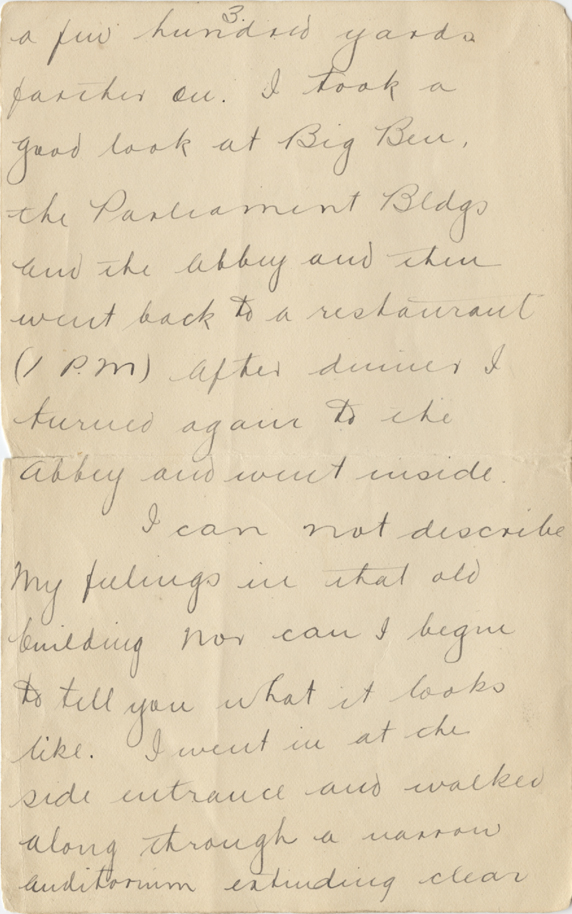 3.
a few hundred yards
farther on. I took a
good look at Big Ben,
the Parliament Bldgs
and the Abbey and then
went back to a restaurant
(1 P.M) After dinner I
turned again to the
Abbey and went inside.
I can not describe
My feelings in that old
building nor can I begin
to tell you what it looks
like. I went in at the
side entrance and walked
along through a narrow
auditorium extending clear